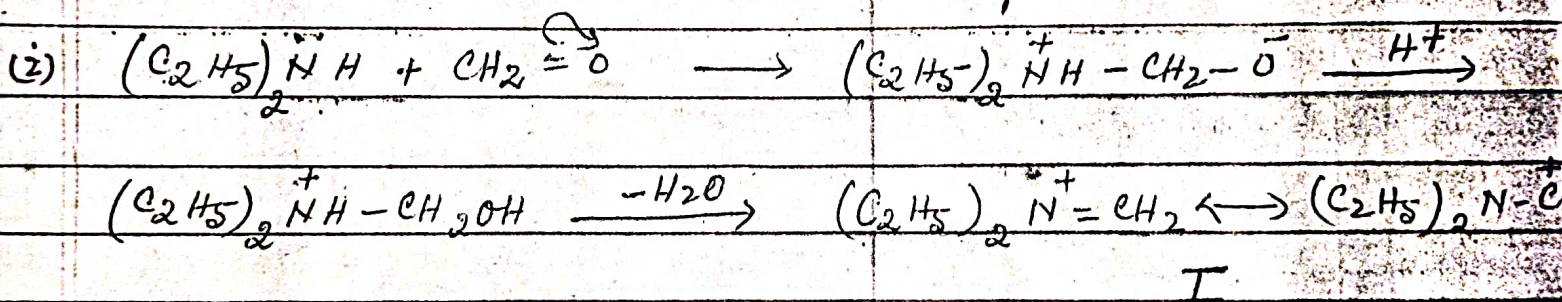 (i) (C2H5)2N̈H + CH2=O ⟶ (C2H5)2N⁺H-CH2-O⁻ —H⁺→
(C2H5)2N⁺H-CH2OH —-H2O→ (C2H5)2N⁺=CH2 ⟷ (C2H5)2N-C⁺
I